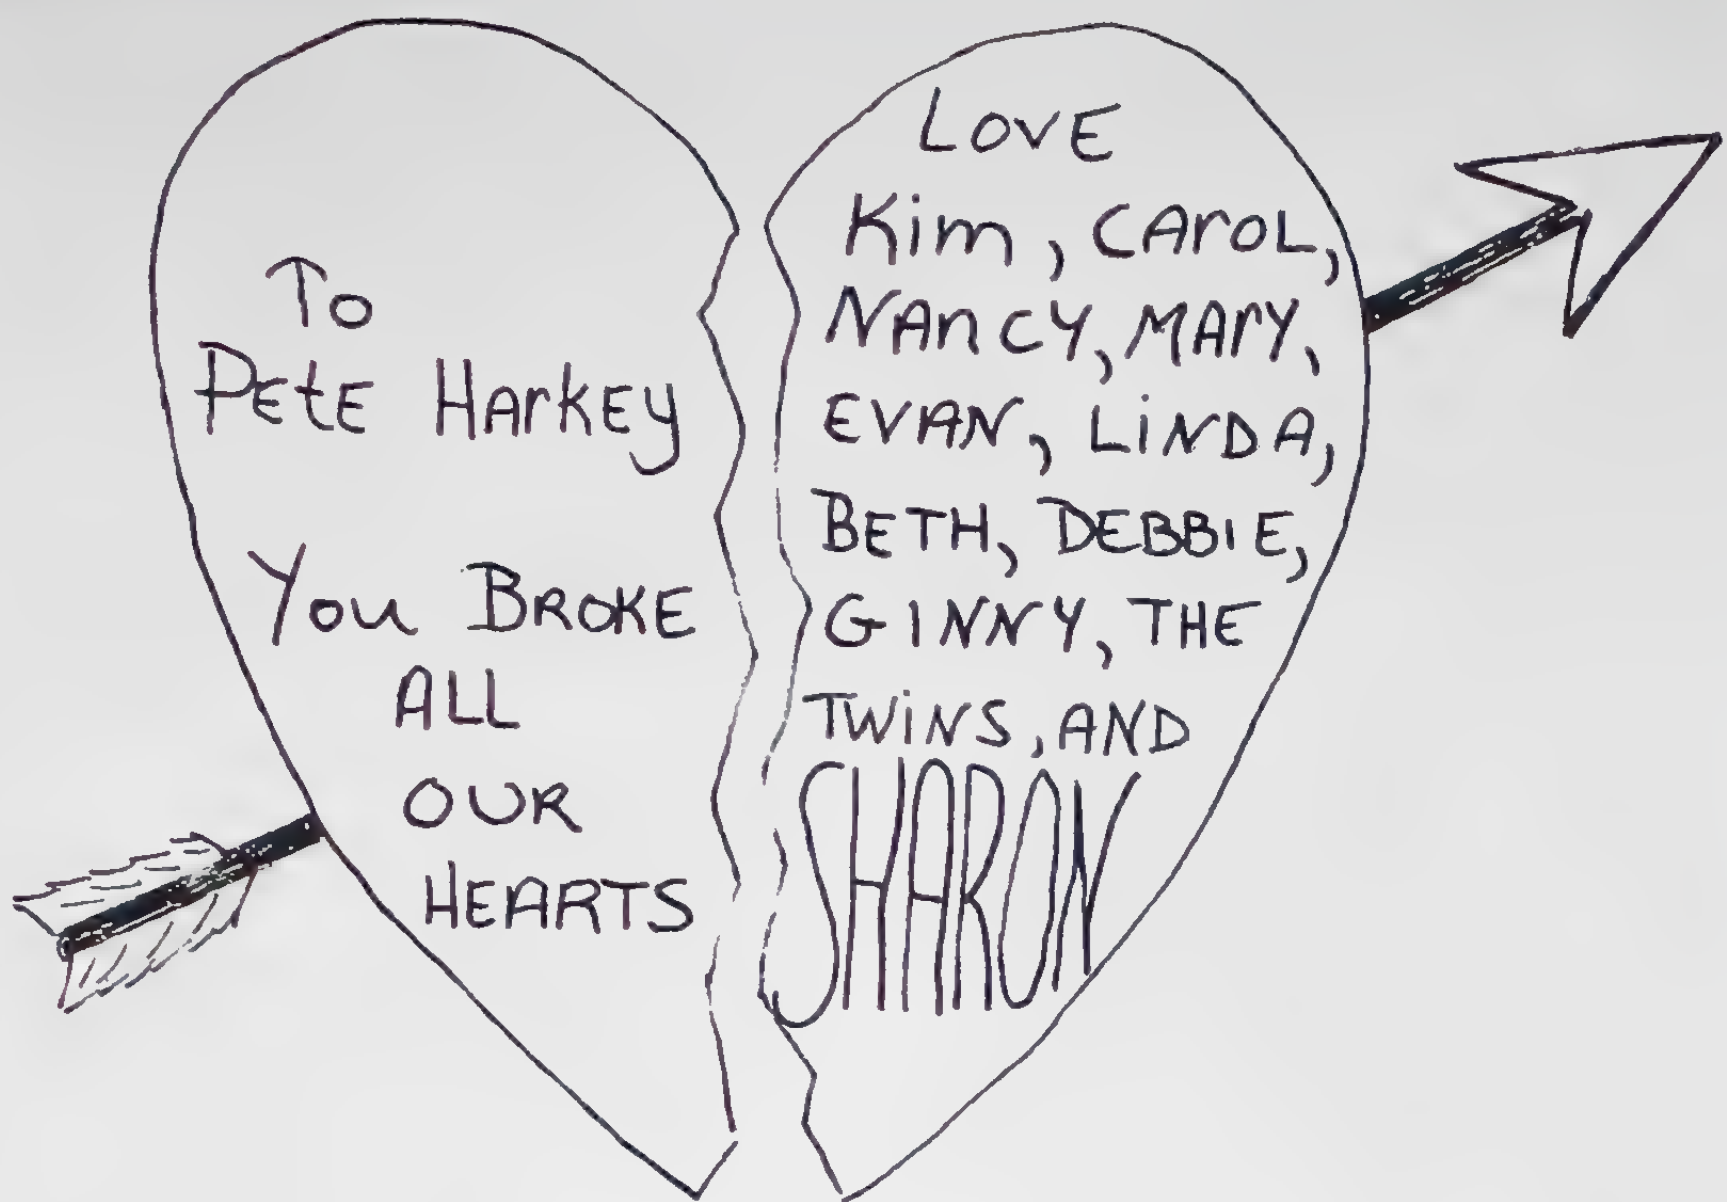 To
PEtE HArKEy
You BROKE
ALL
OUR
HEARTS
LOVE
Kim, CArOL,
NAnCY, MArY,
EVAN, LiNDA,
BETH, DEBBIE,
GINNY, THE
TWiNS, AND
SHARON